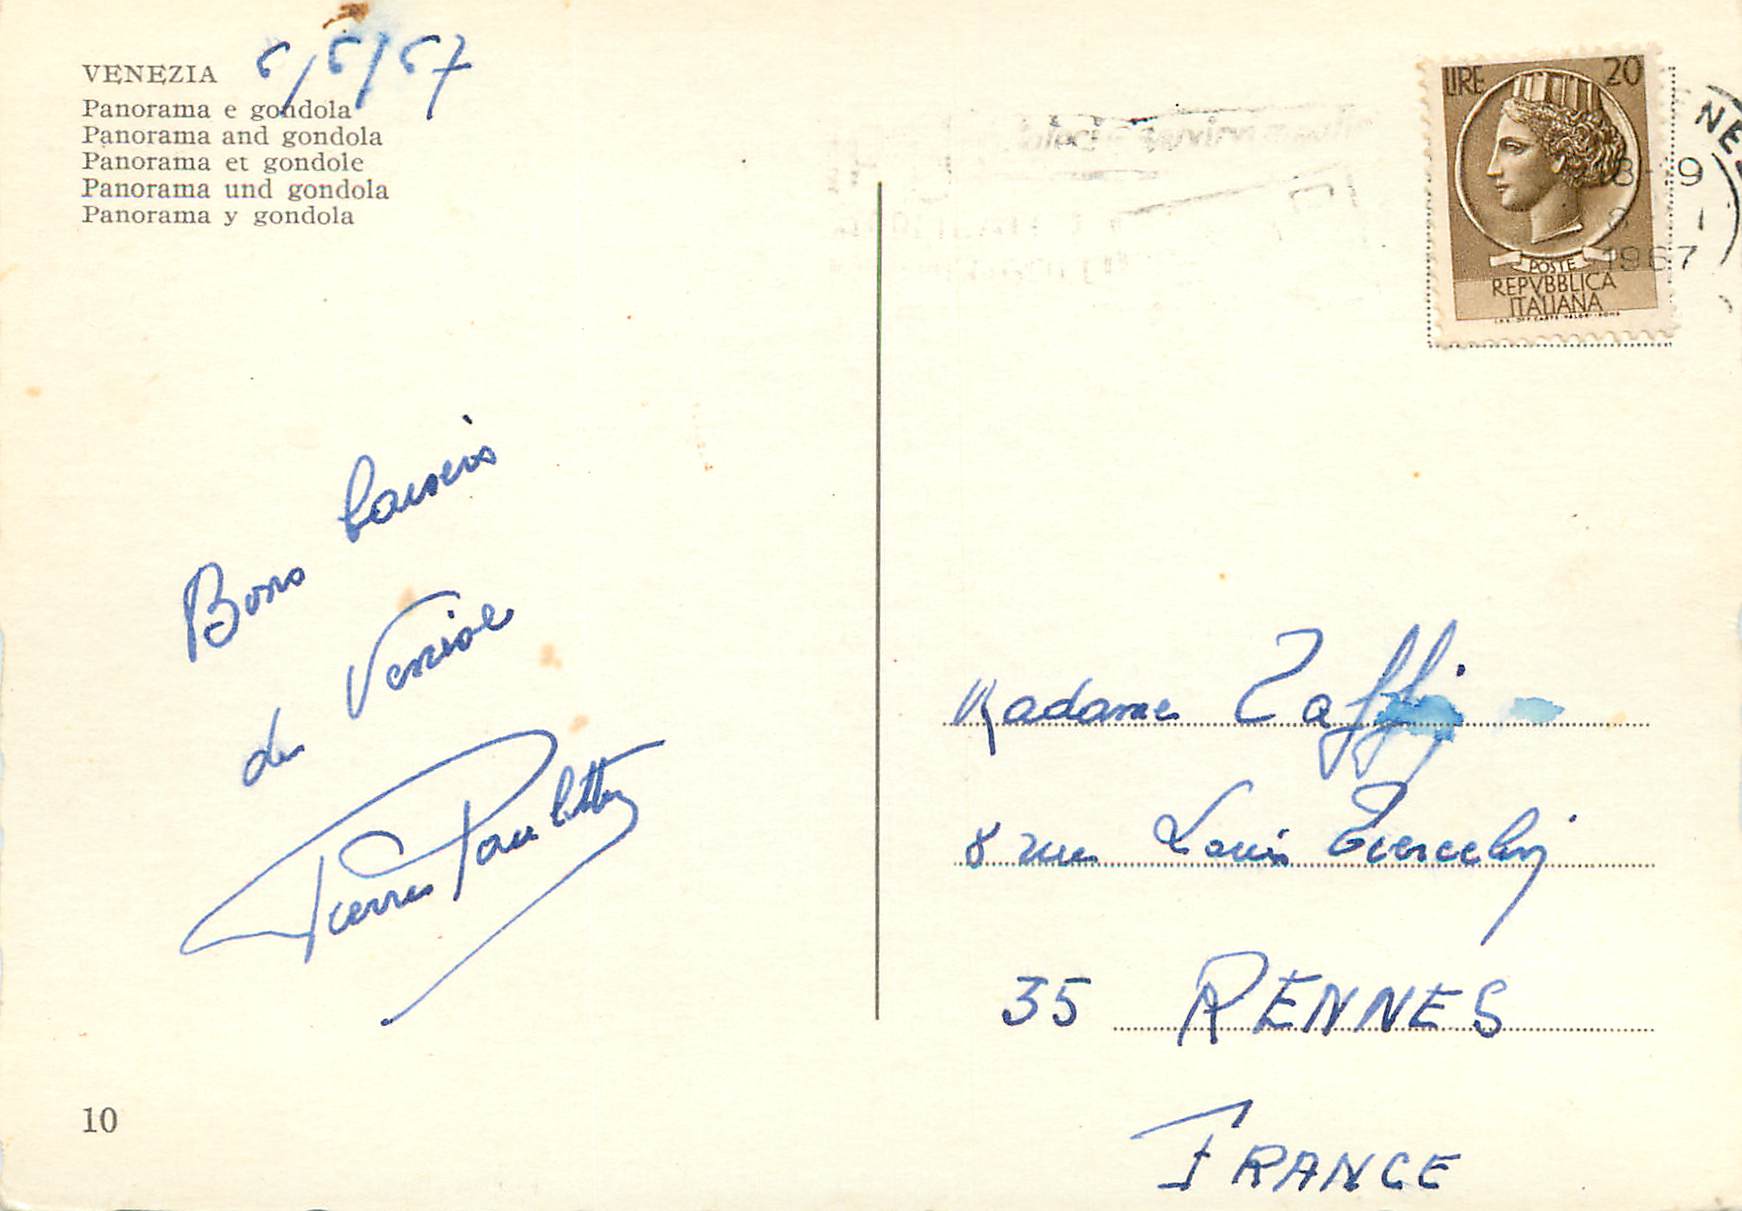 VENEZIA 6/6/67
Panorama e gondola
Panorama and gondola
Panorama et gondole
Panorama und gondola
Panorama y gondola
Bons baisers
de Venise
Pierre Paulette
10
LIRE 20
POSTE
REPVBBLICA
ITALIANA
1967
Madame Taffy
8 rue Louis
35 RENNES
FRANCE